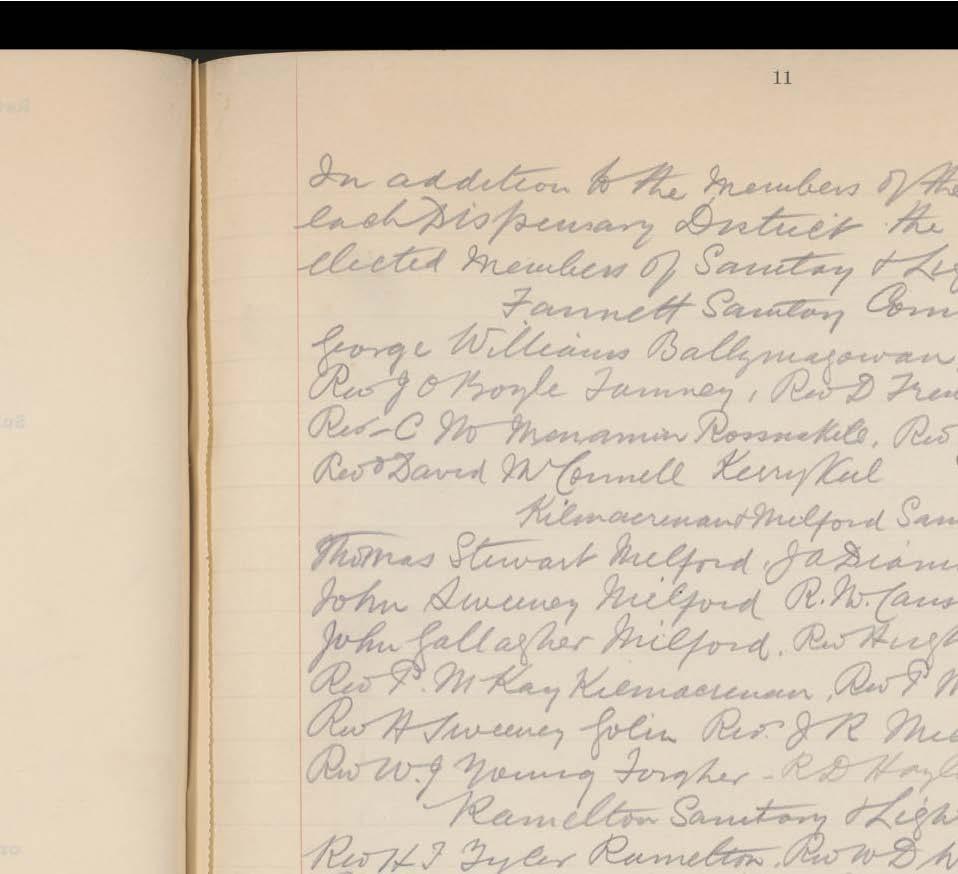 11
In addition to the Members of the
each Dispensary District the
elected Members of Sanitary & Lig
Fannett Sanitary Com
George Williams Ballymagowan,
Rev J O Boyle Tamney, Rev D
Rev C Mc Menamin Rossnakill, Rev
Rev David McConnell Kerrykeel
Kilmacrenan & Milford San
Thomas Stewart Milford, J A Diam
John Sweeney Milford R. W.
John Gallagher Milford, Rev Hugh
Rev P. McKay Kilmacrenan, Rev P
Rev H Sweeney Golin Rev. J R
Rev W. J Young - R D Hay
Ramelton Sanitary & Ligh
Rev H F Tyler Ramelton, Rev W D